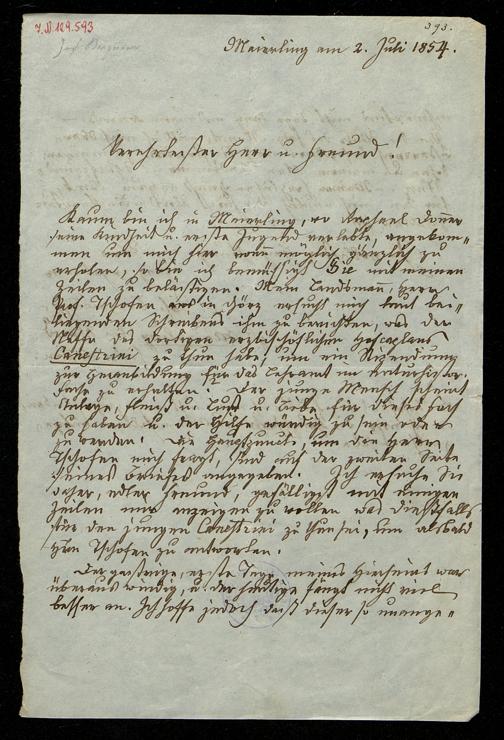 J.N. 129.593
393.
Jos. Bergmann
Meierling am 2. Juli 1854.
Verehrtester Herr u. Freund!
Kaum bin ich in Meierling, wo Raphael Doner
seine Kindheit u. erste Jugend verlebte, angekom=
men um mich hier wo möglich gänzlich zu
erholen, so bin ich bemüssigt Sie mit meinen
Zeilen zu belästigen. Mein Landsmann, Herr
Prof. Tschofen aus in Görz ersucht mich laut bei=
liegenden Schreibens ihm zu berichten, was der
Neffe des dortigen erzbischöflichen Hofcaplans
Canestrini zu thun habe, um ein
zur Heranbildung für das Lehramt im naturhistor.
Fache zu erhalten. Der junge Mensch scheint
Anlage, Fleiß u. Lust u. Liebe für dieses Fach
zu haben u. der Hilfe würdig zu sein oder
zu werden. Die Hauptpunkte, um die Herr
Tschofen mich fragt, sind auf der zweiten Seite
seines Briefes angegeben. Ich ersuche Sie
daher, edler Freund, gefälligst mit einigen
Zeilen mir anzeigen zu wollen was diesfalls
für den jungen Canestrini zu thun sei, um alsbald
Hrn Tschofen zu antworten.
Der gestrige, erste Tag meines Hierseins war
überaus windig, u. der heutige fängt nicht viel
besser an. Ich hoffe jedoch daß dieser so unange=